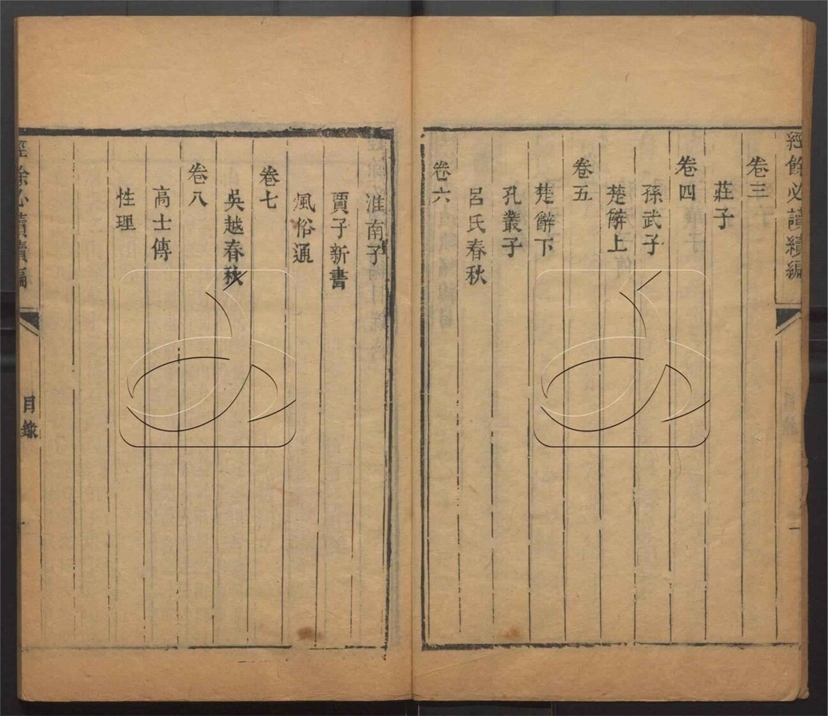 經餘必讀續編
卷三
莊子
卷四
孫武子
楚辭上
卷五
楚辭下
孔叢子
呂氏春秋
卷六
淮南子
賈子新書
風俗通
卷七
吳越春秋
卷八
高士傳
性理
經餘必讀續編
目錄
一